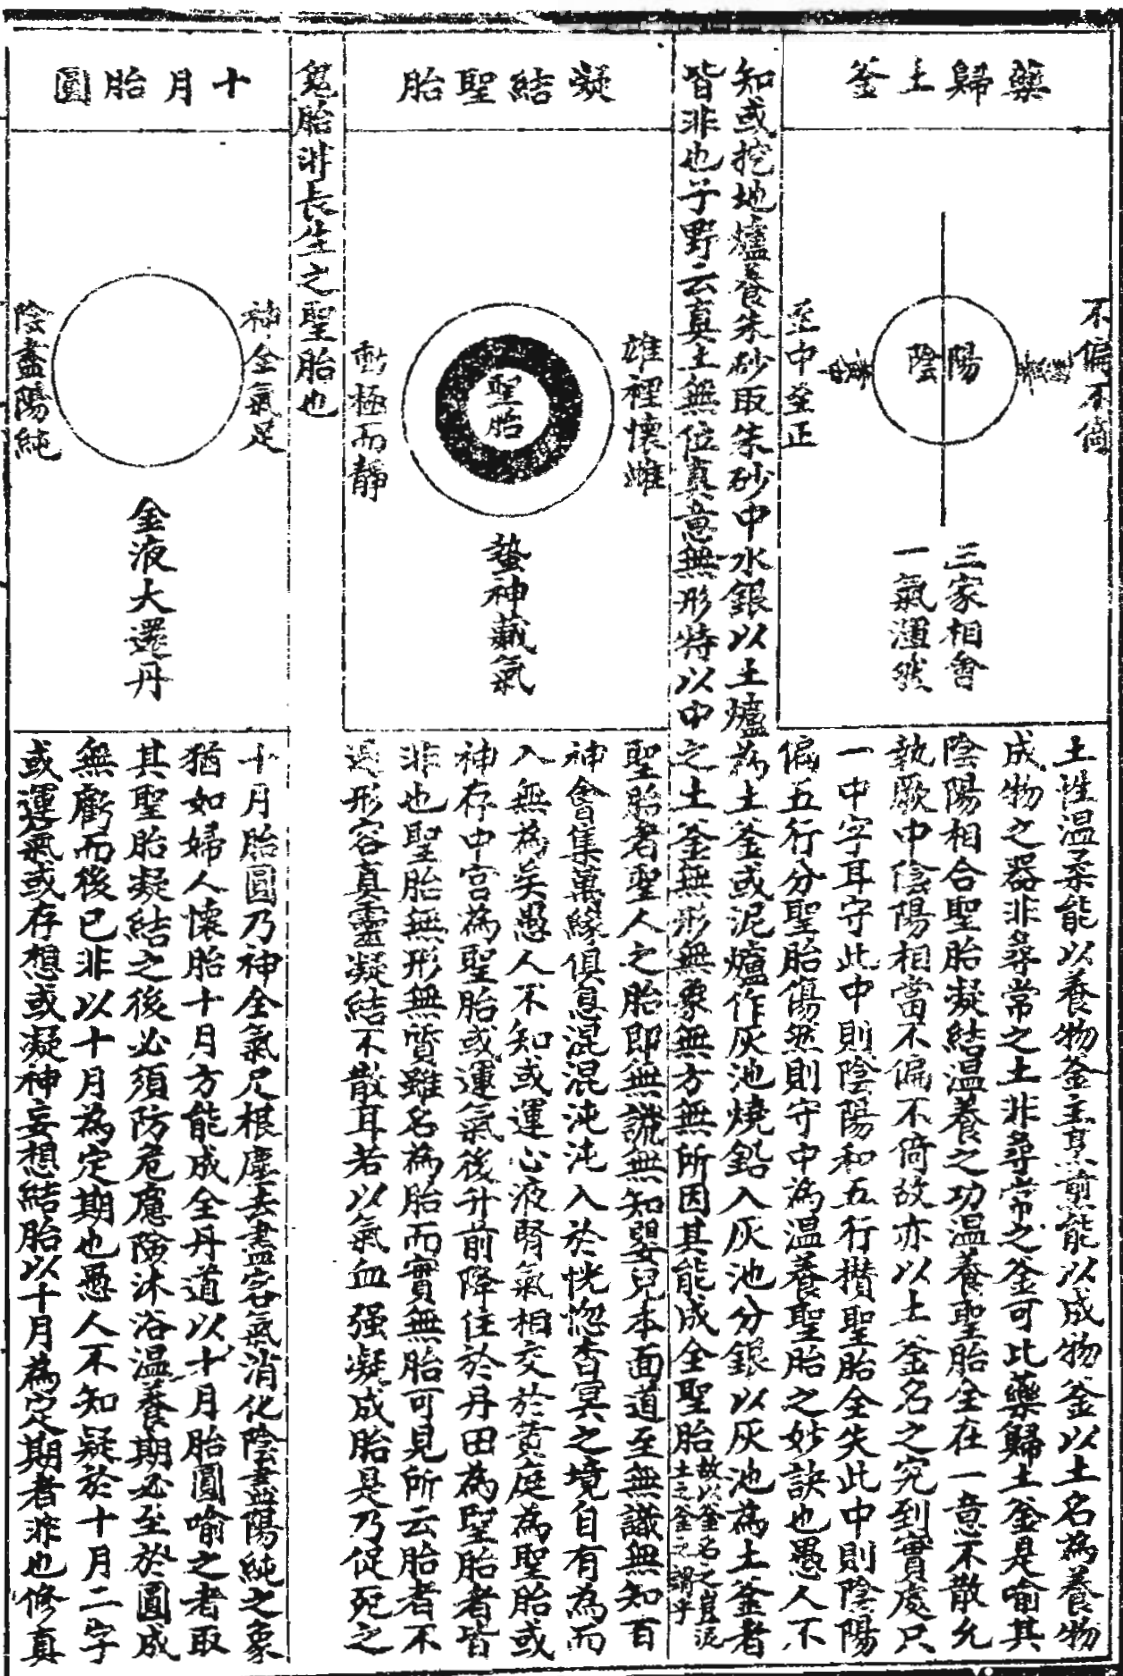 藥歸土釜
不偏不倚
陽
陰
至中至正
三家相會
一氣渾然
土性溫柔能以養物釜主烹煎能以成物釜以土名為養物
成物之器非尋常之土非尋常之釜可比藥歸土釜是喻其
陰陽相合聖胎凝結溫養之功溫養聖胎全在一意不散允
執厥中陰陽相當不偏不倚故亦以土釜名之究到實處只
一中字耳守此中則陰陽和五行攅聖胎全失此中則陰陽
偏五行分聖胎傷然則守中為溫養聖胎之妙訣也愚人不
知或挖地爐養朱砂取朱砂中水銀以土爐為土釜或泥爐作灰池燒鉛入灰池分銀以灰池為土釜者
皆非也子野云真土無位真意無形特以中之土釜無形無象無方無所因其能成全聖胎故以釜名之豈泥
土之釜之謂乎
凝結聖胎
雄裡懷雌
聖胎
動極而靜
蟄神藏氣
聖胎者聖人之胎即無識無知嬰兒本面道至無識無知百
神會集萬緣俱息混混沌沌入於恍惚杳冥之境自有為而
入無為矣愚人不知或運心液腎氣相交於黃庭為聖胎或
神存中宮為聖胎或運氣後升前降住於丹田為聖胎者皆
非也聖胎無形無質雖名為胎而實無胎可見所云胎者不
過形容真靈凝結不散耳若以氣血强凝成胎是乃促死之
鬼胎非長生之聖胎也
十月胎圓
神全氣足
陰盡陽純
金液大還丹
十月胎圓乃神全氣足根塵去盡客氣消化陰盡陽純之象
猶如婦人懷胎十月方能成全丹道以十月胎圓喻之者取
其聖胎凝結之後必須防危慮險沐浴溫養期必至於圓成
無虧而後已非以十月為定期也愚人不知疑於十月二字
或運氣或存想或凝神妄想結胎以十月為定期者非也修真